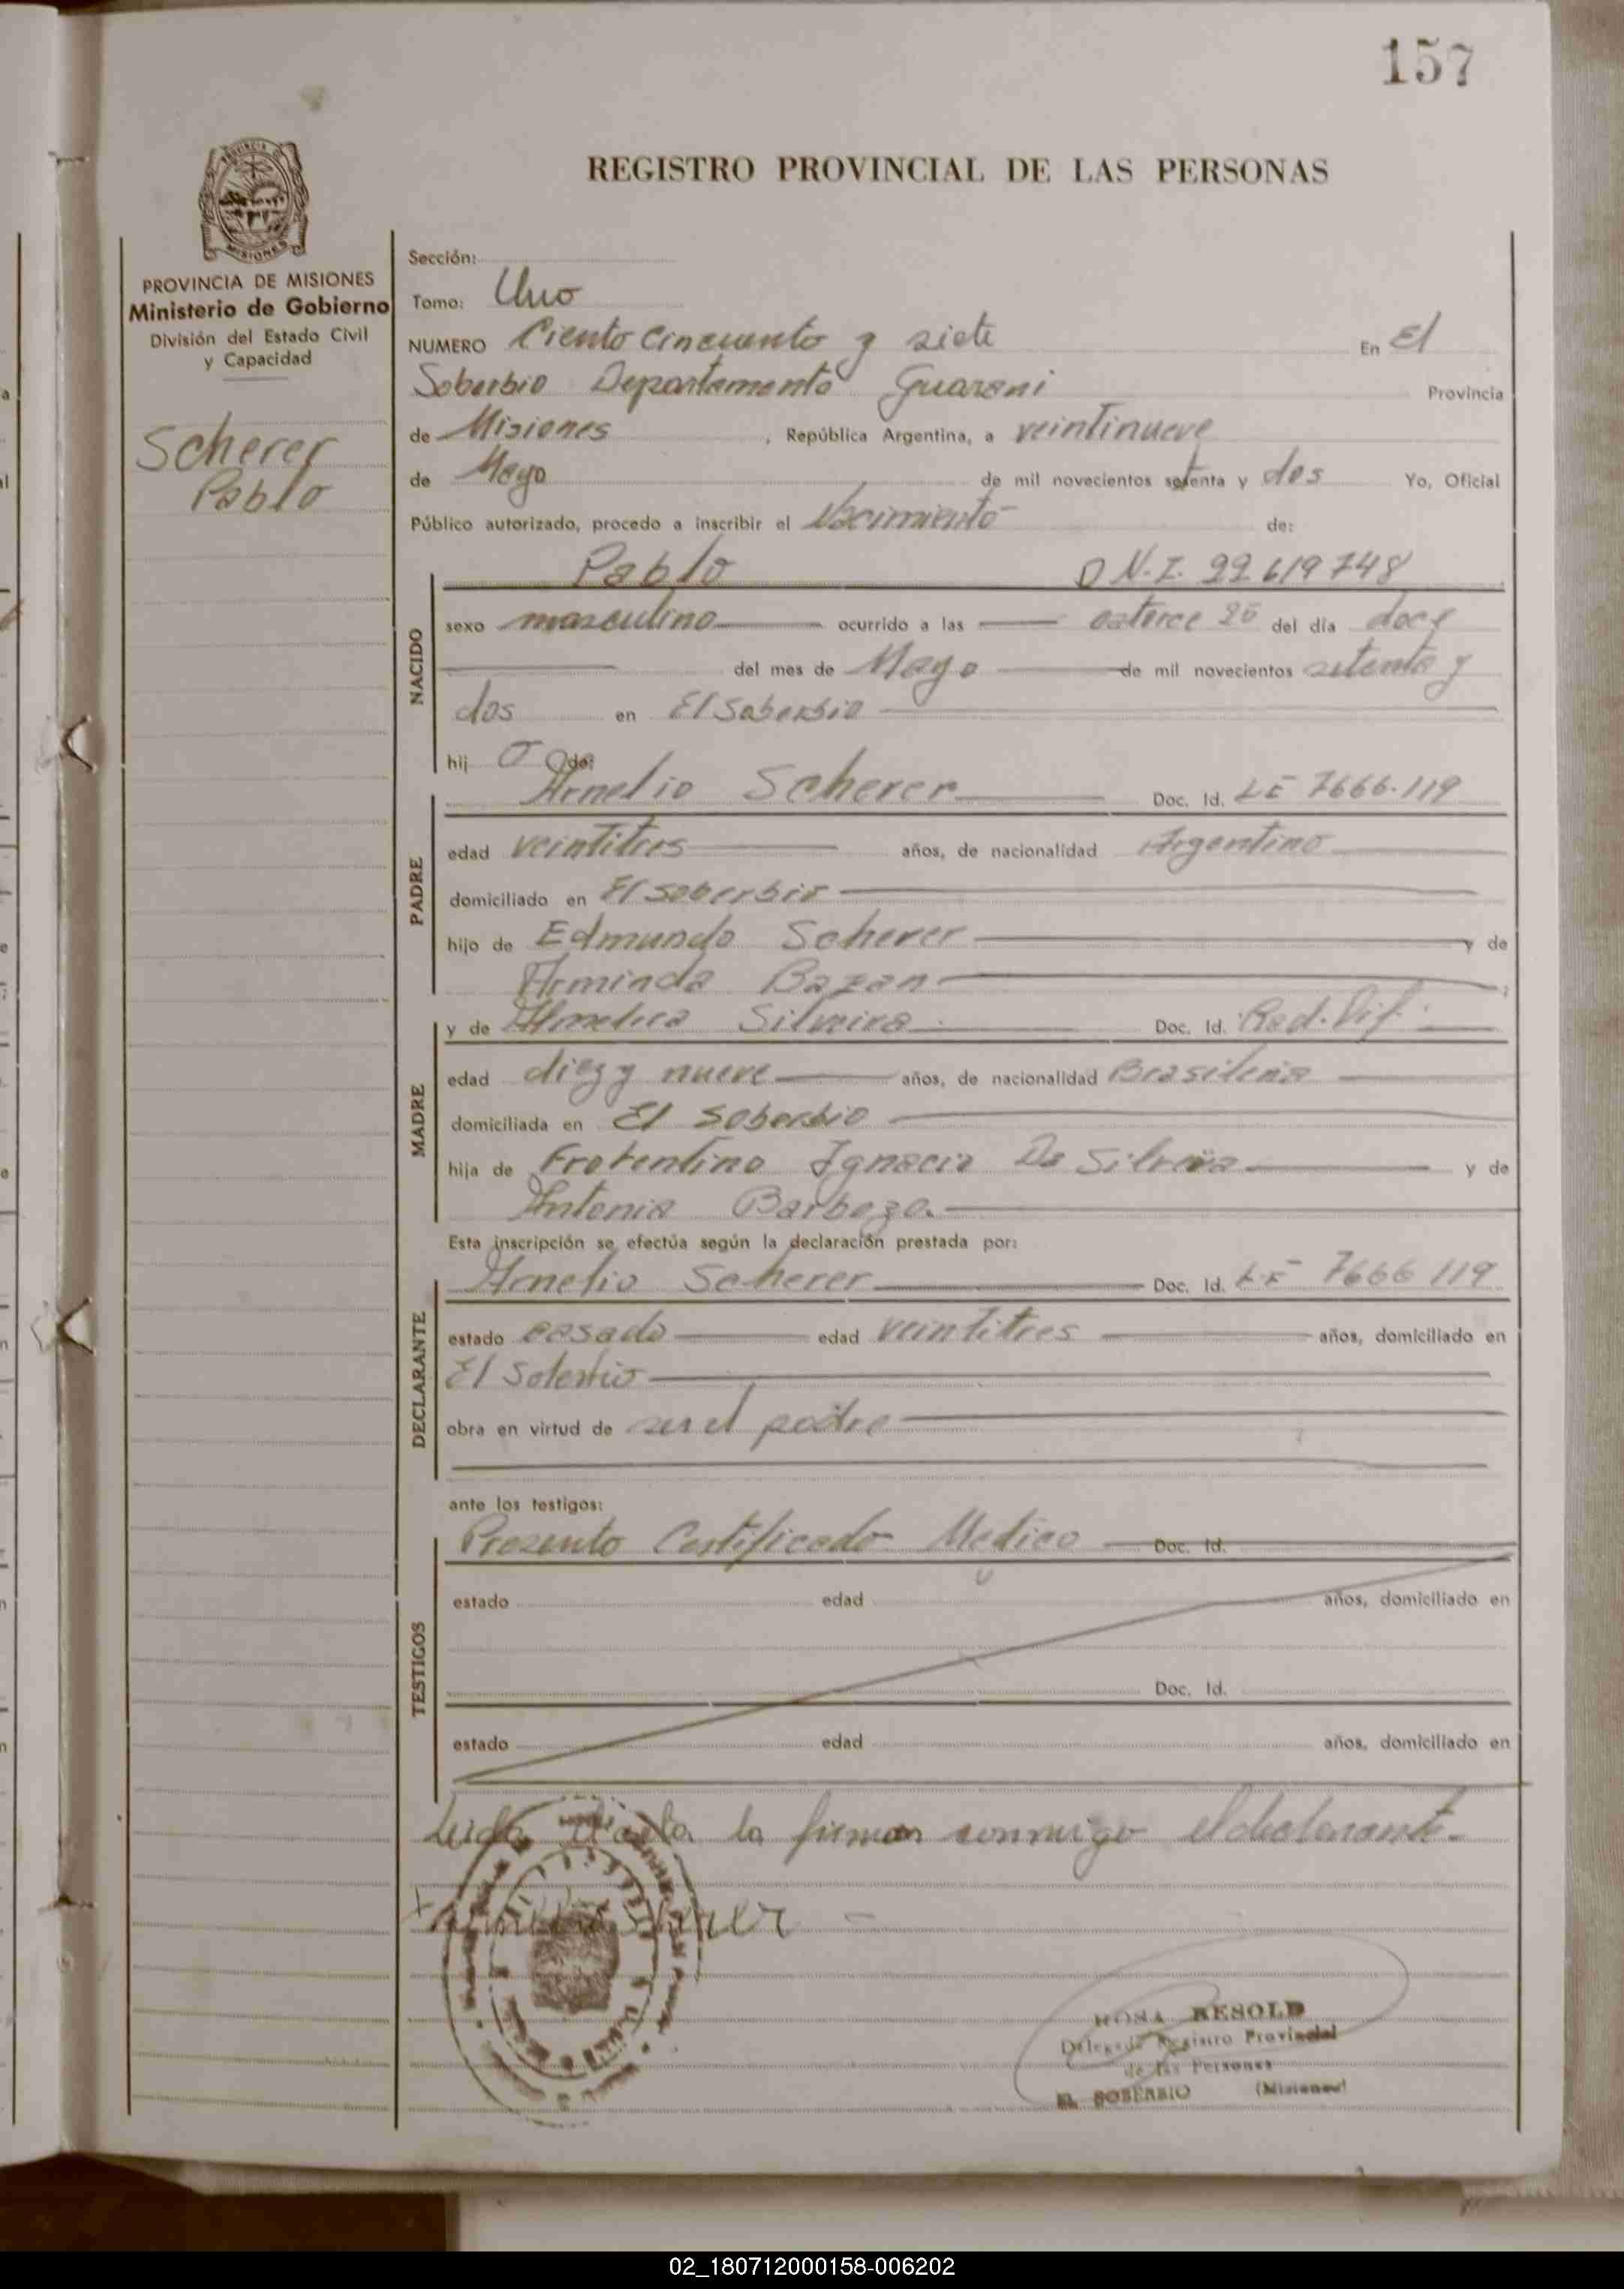 157
REGISTRO PROVINCIAL DE LAS PERSONAS
PROVINCIA DE MISIONES
Ministerio de Gobierno
División del Estado Civil
y Capacidad
Scherer
Pablo
Sección:
Tomo: Uno
NUMERO Ciento cincuenta y siete En El
Soberbio Departamento Guarani Provincia
de Misiones, República Argentina, a veintinueve
de Mayo de mil novecientos setenta y dos Yo, Oficial
Público autorizado, procedo a inscribir el Nacimiento de:
Pablo D.N.I. 22.619.748
NACIDO
sexo masculino ocurrido a las catorce 25 del día doce
del mes de Mayo de mil novecientos setenta y
dos en El Soberbio
hij o de:
PADRE
Arnelio Scherer Doc. Id. LE 7666.119
edad veintitres años, de nacionalidad Argentino
domiciliado en El Soberbio
hijo de Edmundo Scherer y de
Arminda Bazan
MADRE
y de Silveira Doc. Id.
edad diez y nueve años, de nacionalidad Brasileña
domiciliada en El Soberbio
hija de Ignacio Da Silveira y de
Antonia Barboza.
Esta inscripción se efectúa según la declaración prestada por:
DECLARANTE
Arnelio Scherer Doc. Id. L.E 7666 119
estado casado edad veintitres años, domiciliado en
El Soberbio
obra en virtud de ser el padre
ante los testigos:
TESTIGOS
Presento Certificado Medico Doc. Id.
estado edad años, domiciliado en
Doc. Id.
estado edad años, domiciliado en
Leida el acta la firman conmigo el declarante.-
ROSA RESOLD
Delegado Registro Provincial
de las Personas
EL SOBERBIO (Misiones)
02_180712000158-006202